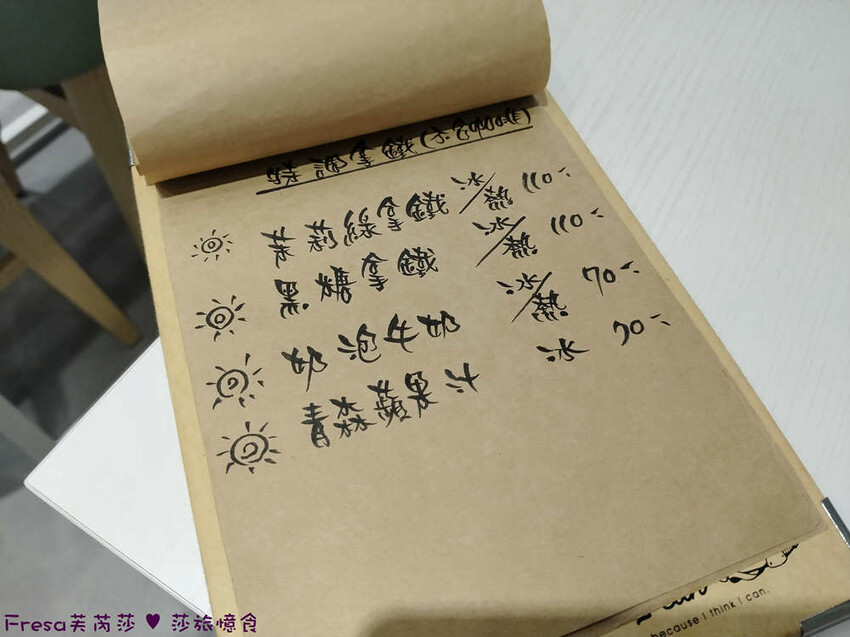 特調拿鐵(不含咖啡)
茉莉綠拿鐵 冰/熱 110-
黑糖拿鐵 冰/熱 110-
奶泡牛奶 冰/熱 70-
青森蘋果汁 冰 70-
because I think I can.
Fresa芙芮莎 ♥ 莎旅憶食